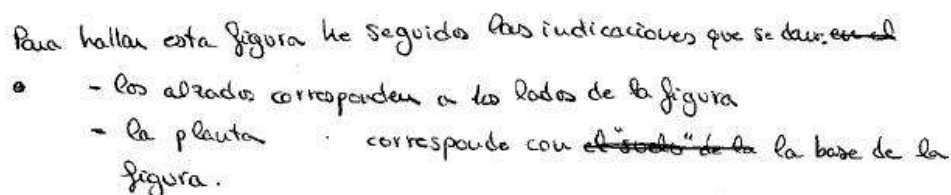 Para hallar esta figura he seguido las indicaciones que se dan. en el
- los alzados corresponden a los lados de la figura
- la planta . corresponde con el "suelo" de la la base de la
figura.